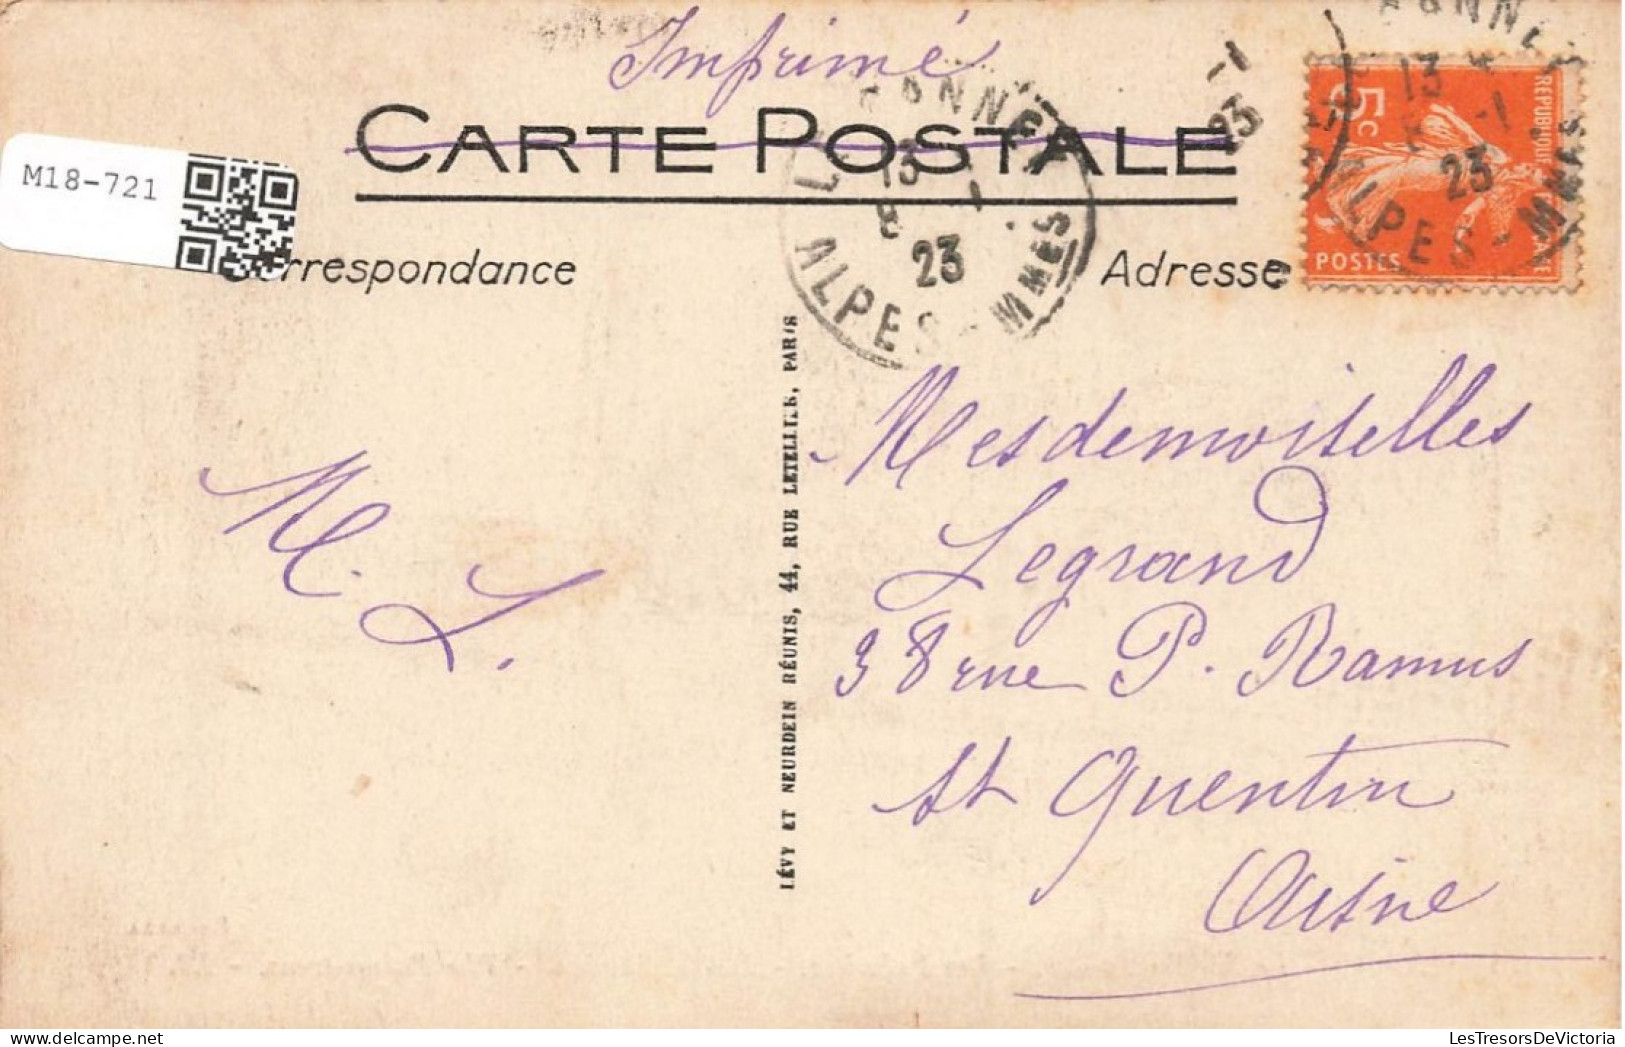 Imprimé
CARTE POSTALE
M18-721
Correspondance
Adresse
13 -1
8
23
ALPES-MMES
-1
23
13
-1
23
ALPES-MMES
5c
POSTES
LÉVY ET NEURDEIN RÉUNIS, 44, RUE LETELLIER, PARIS
Mesdemoiselles
Legrand
38 rue P. Ramus
St Quentin
Aisne
M.
L.
LesTresorsDeVictoria